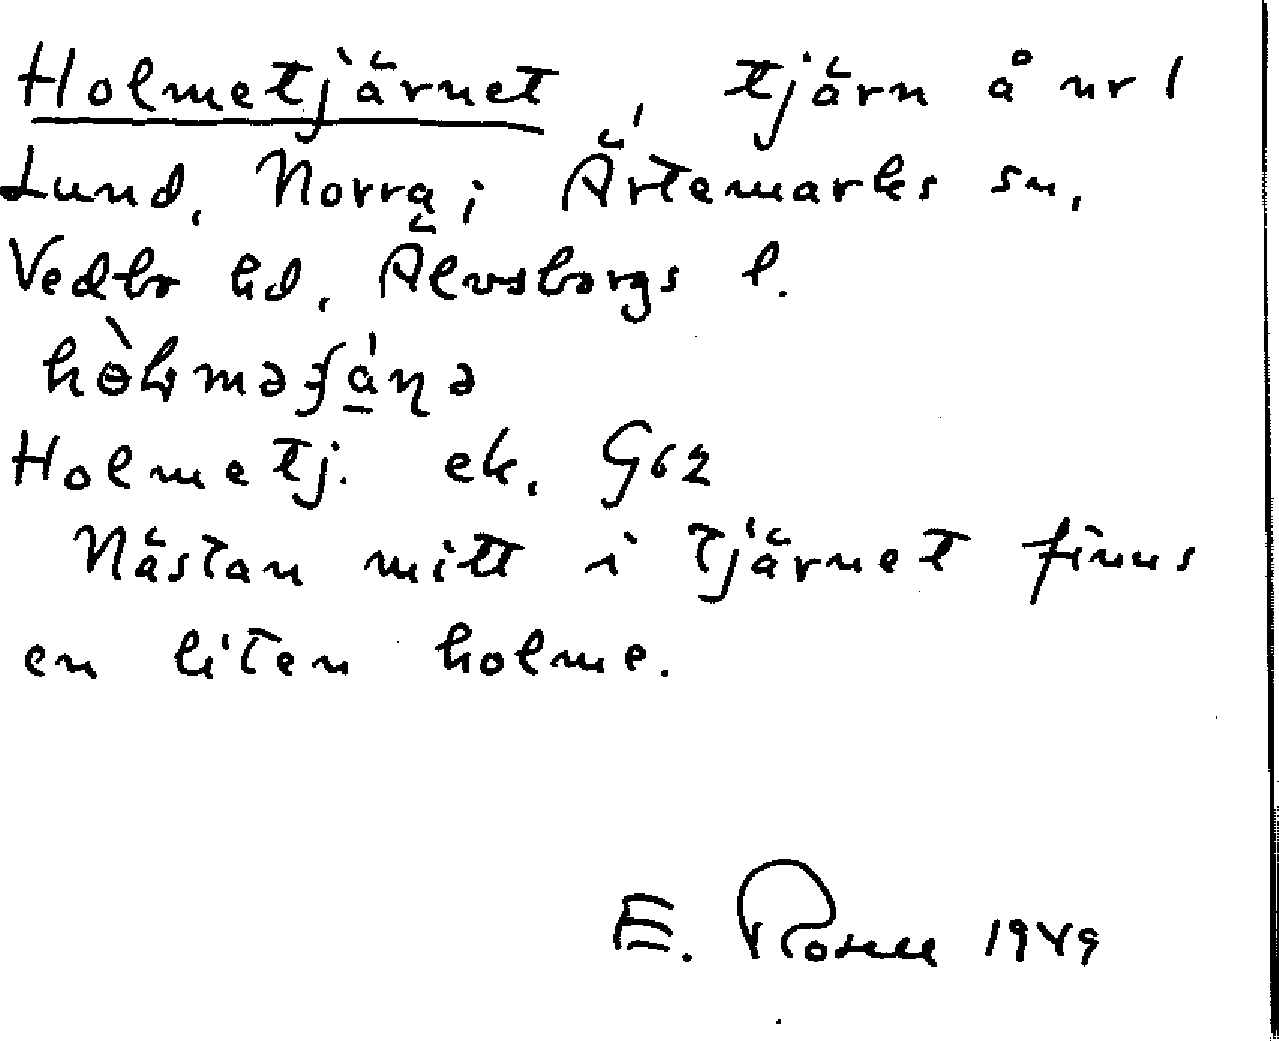 Holmetjärnet, tjärn å nr 1
Lund, Norra i Ärtemarks sn,
Vedbo hd, Älvsborgs l.
Holmetj. ek. G62
Nästan mitt i tjärnet finns
en liten holme.
E. Rosell 1949